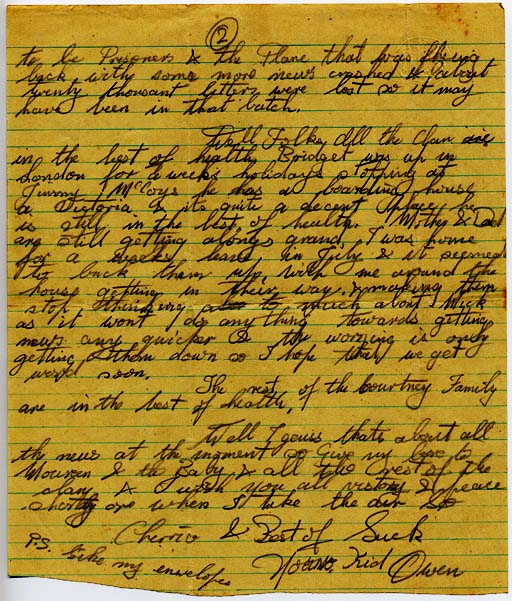 2
to be Prisoners & the Plane that was flying
back with some more news crashed & about
twenty thousand letters were lost so it may
have been in that batch.
Well Folks all the clan are
in the best of health, Bridget was up in
London for a weeks holidays stopping at
Jimmy McCoys he has a boarding house
a Victoria & its quite a decent place, he
is still in the best of health. Mother & Dad
are still getting along grand, I was home
for a weeks leave in July & it seemed
to buck them up, with me around the
house getting in their way, & making them
stop thinking to much about Mick
as it wont do anything towards getting
news any quicker & the worrying is only
getting them down so I hope that we get
word soon.
The rest of the Courtney Family
are in the best of health,
Well I guess thats about all
the news at the moment so Give my love to
Moureen & the Baby & all the rest of the
clan & wish you all victory & peace
shortly one when I take the air
Cherrio & Best of Luck
P.S. Like my envelope
Kid Owen